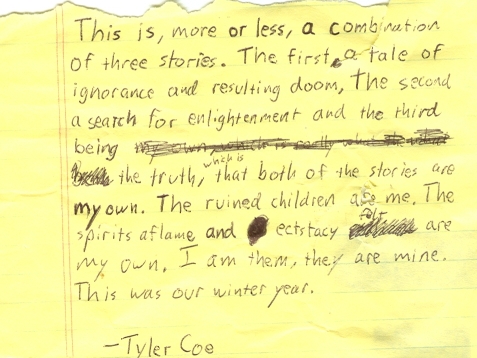 This is, more or less, a combination
of three stories. The first, a tale of
ignorance and resulting doom, The second
a search for enlightenment and the third
being
which is
the truth, that both of the stories are
my own. The ruined children are me. The
felt
spirits aflame and ectstacy are
my own. I am them, they are mine.
This was our winter year.
—Tyler Coe